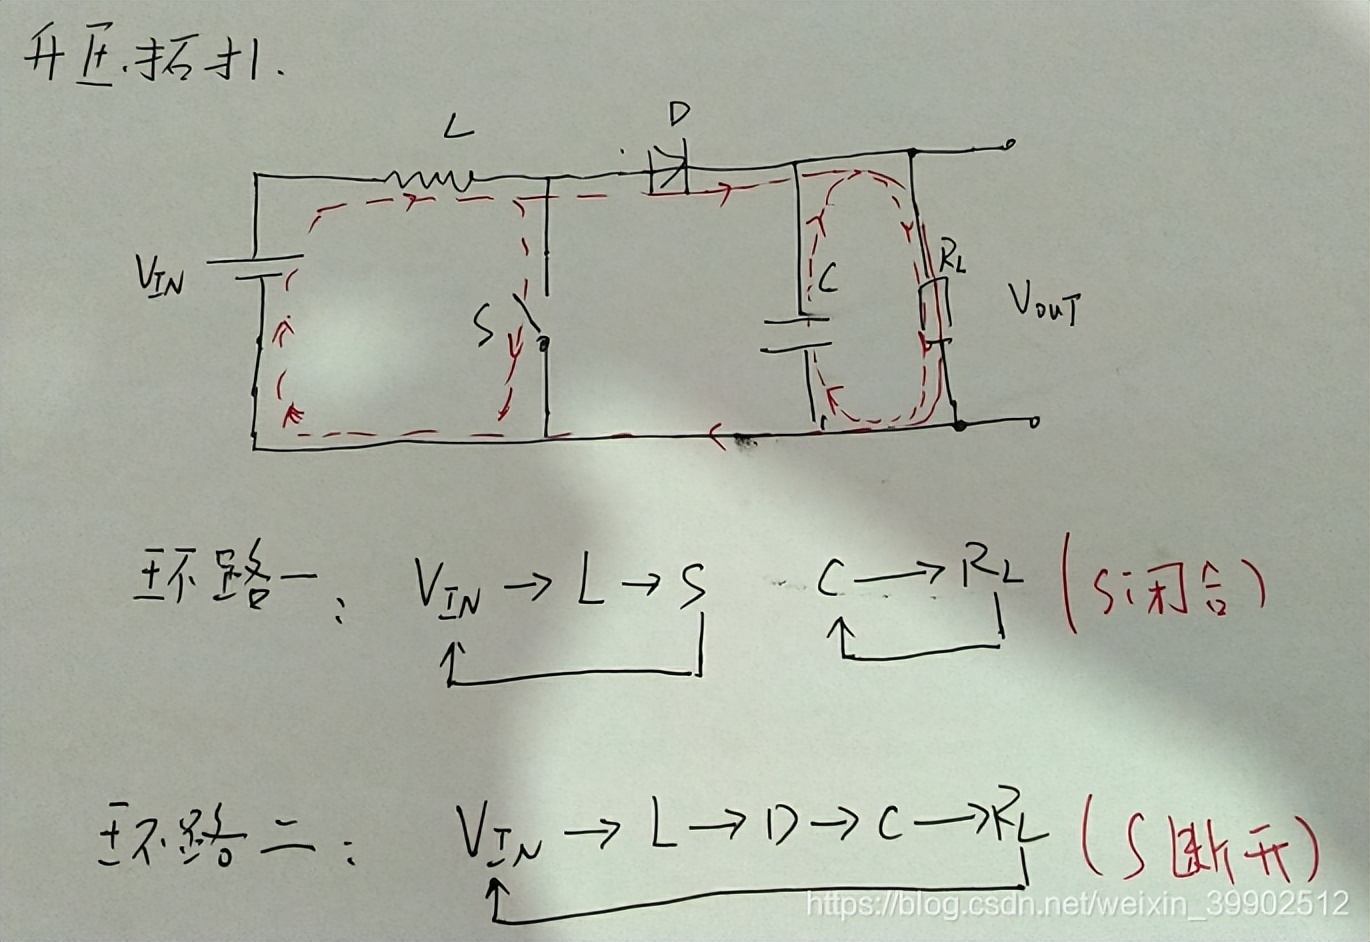 升压拓扑.
L
D
VIN
S
C
RL
VOUT
环路一: VIN → L → S C → RL (S闭合)
环路二: VIN → L → D → C → RL (S断开)
https://blog.csdn.net/weixin_39902512